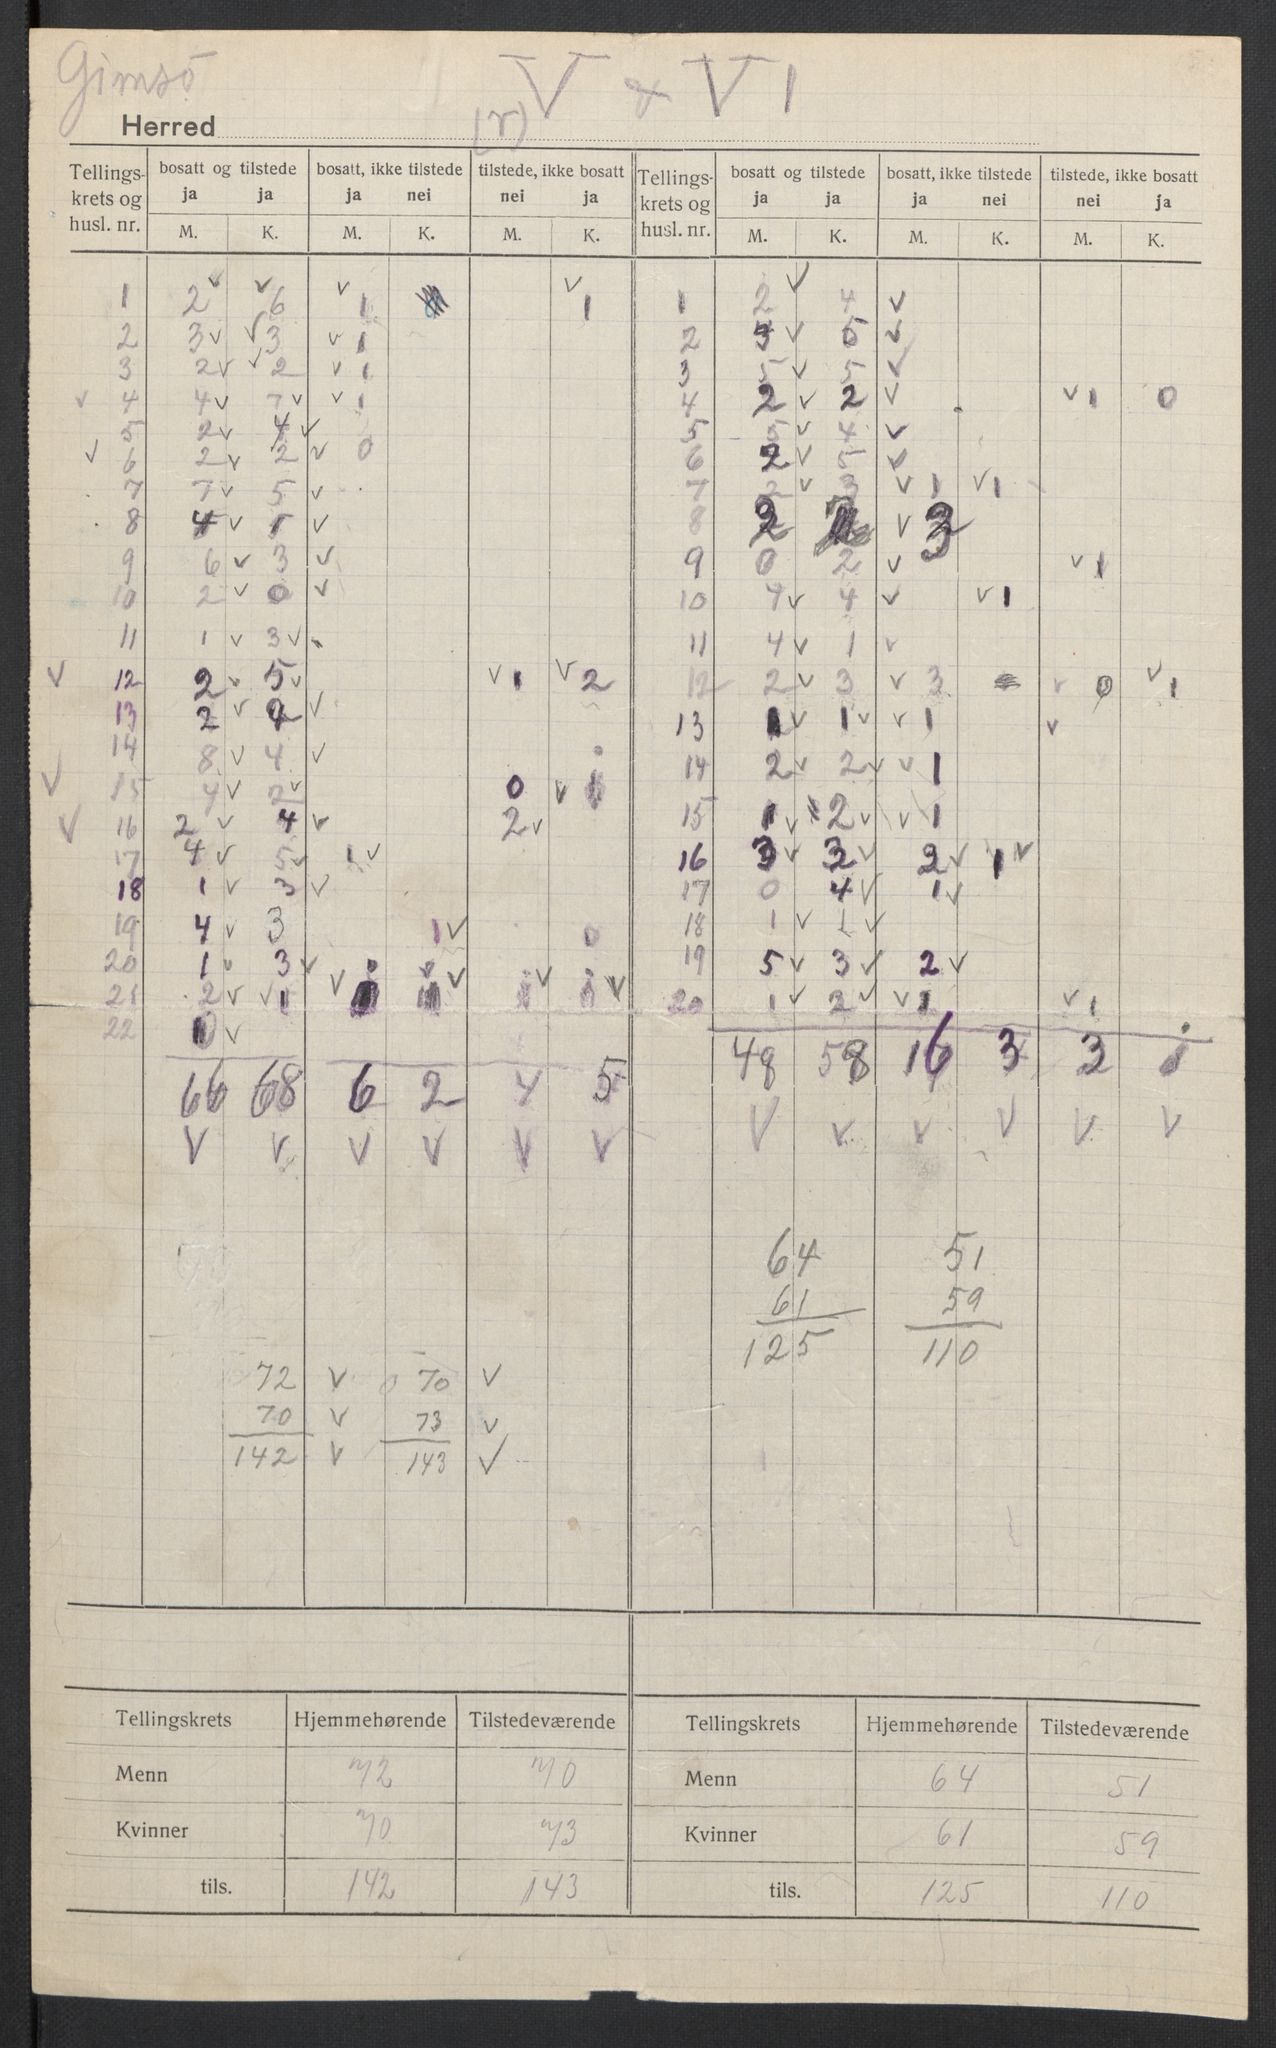 Gimsö V & VI
Herred (r)
Tellings- bosatt og tilstede bosatt, ikke tilstede tilstede, ikke bosatt Tellings- bosatt og tilstede bosatt, ikke tilstede tilstede, ikke bosatt
krets og ja ja ja nei nei ja krets og ja ja ja nei nei ja
husl. nr. M. K. M. K. M. K. husl. nr. M. K. M. K. M. K.
1 2 6 1 1 1 2 4
2 3 3 1 2 5
3 2 2 1 3 5 5
4 4 7 1 4 2 2 1 0
5 2 4 5 5 4
6 2 2 0 6 2 5
7 7 5 7 2 3 1 1
8 4 1 8 2 3
9 6 3 9 0 2 1
10 2 0 10 4 4 1
11 1 3 11 4 1
12 2 5 1 2 12 2 3 3 0 1
13 2 13 1 1 1
14 8 4 14 2 2 1
15 4 2 0 1 15 1 2 1
16 2 4 2 16 3 3 2 1
17 4 5 1 17 0 4 1
18 1 3 18 1 1
19 4 3 1 0 19 5 3 2
20 1 3 20 1 2 1 1
21 2 1
22
66 68 6 2 4 5 48 58 16 3 3 1
64 51
61 59
125 110
72 70
70 73
142 143
Tellingskrets Hjemmehørende Tilstedeværende Tellingskrets Hjemmehørende Tilstedeværende
Menn 72 70 Menn 64 51
Kvinner 70 73 Kvinner 61 59
tils. 142 143 tils. 125 110